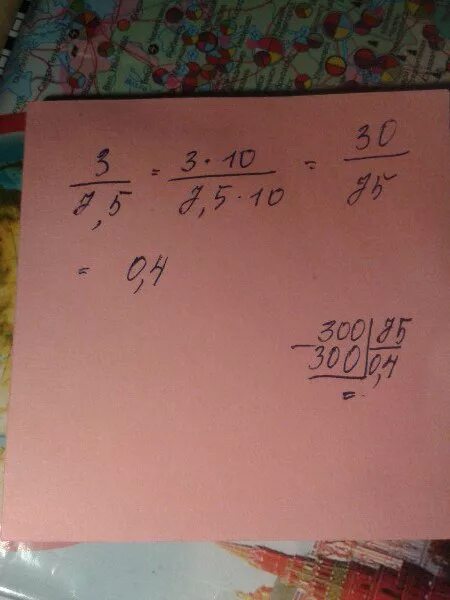 3/7,5 = 3·10/7,5·10 = 30/75
= 0,4
300|75
-300|0,4
=